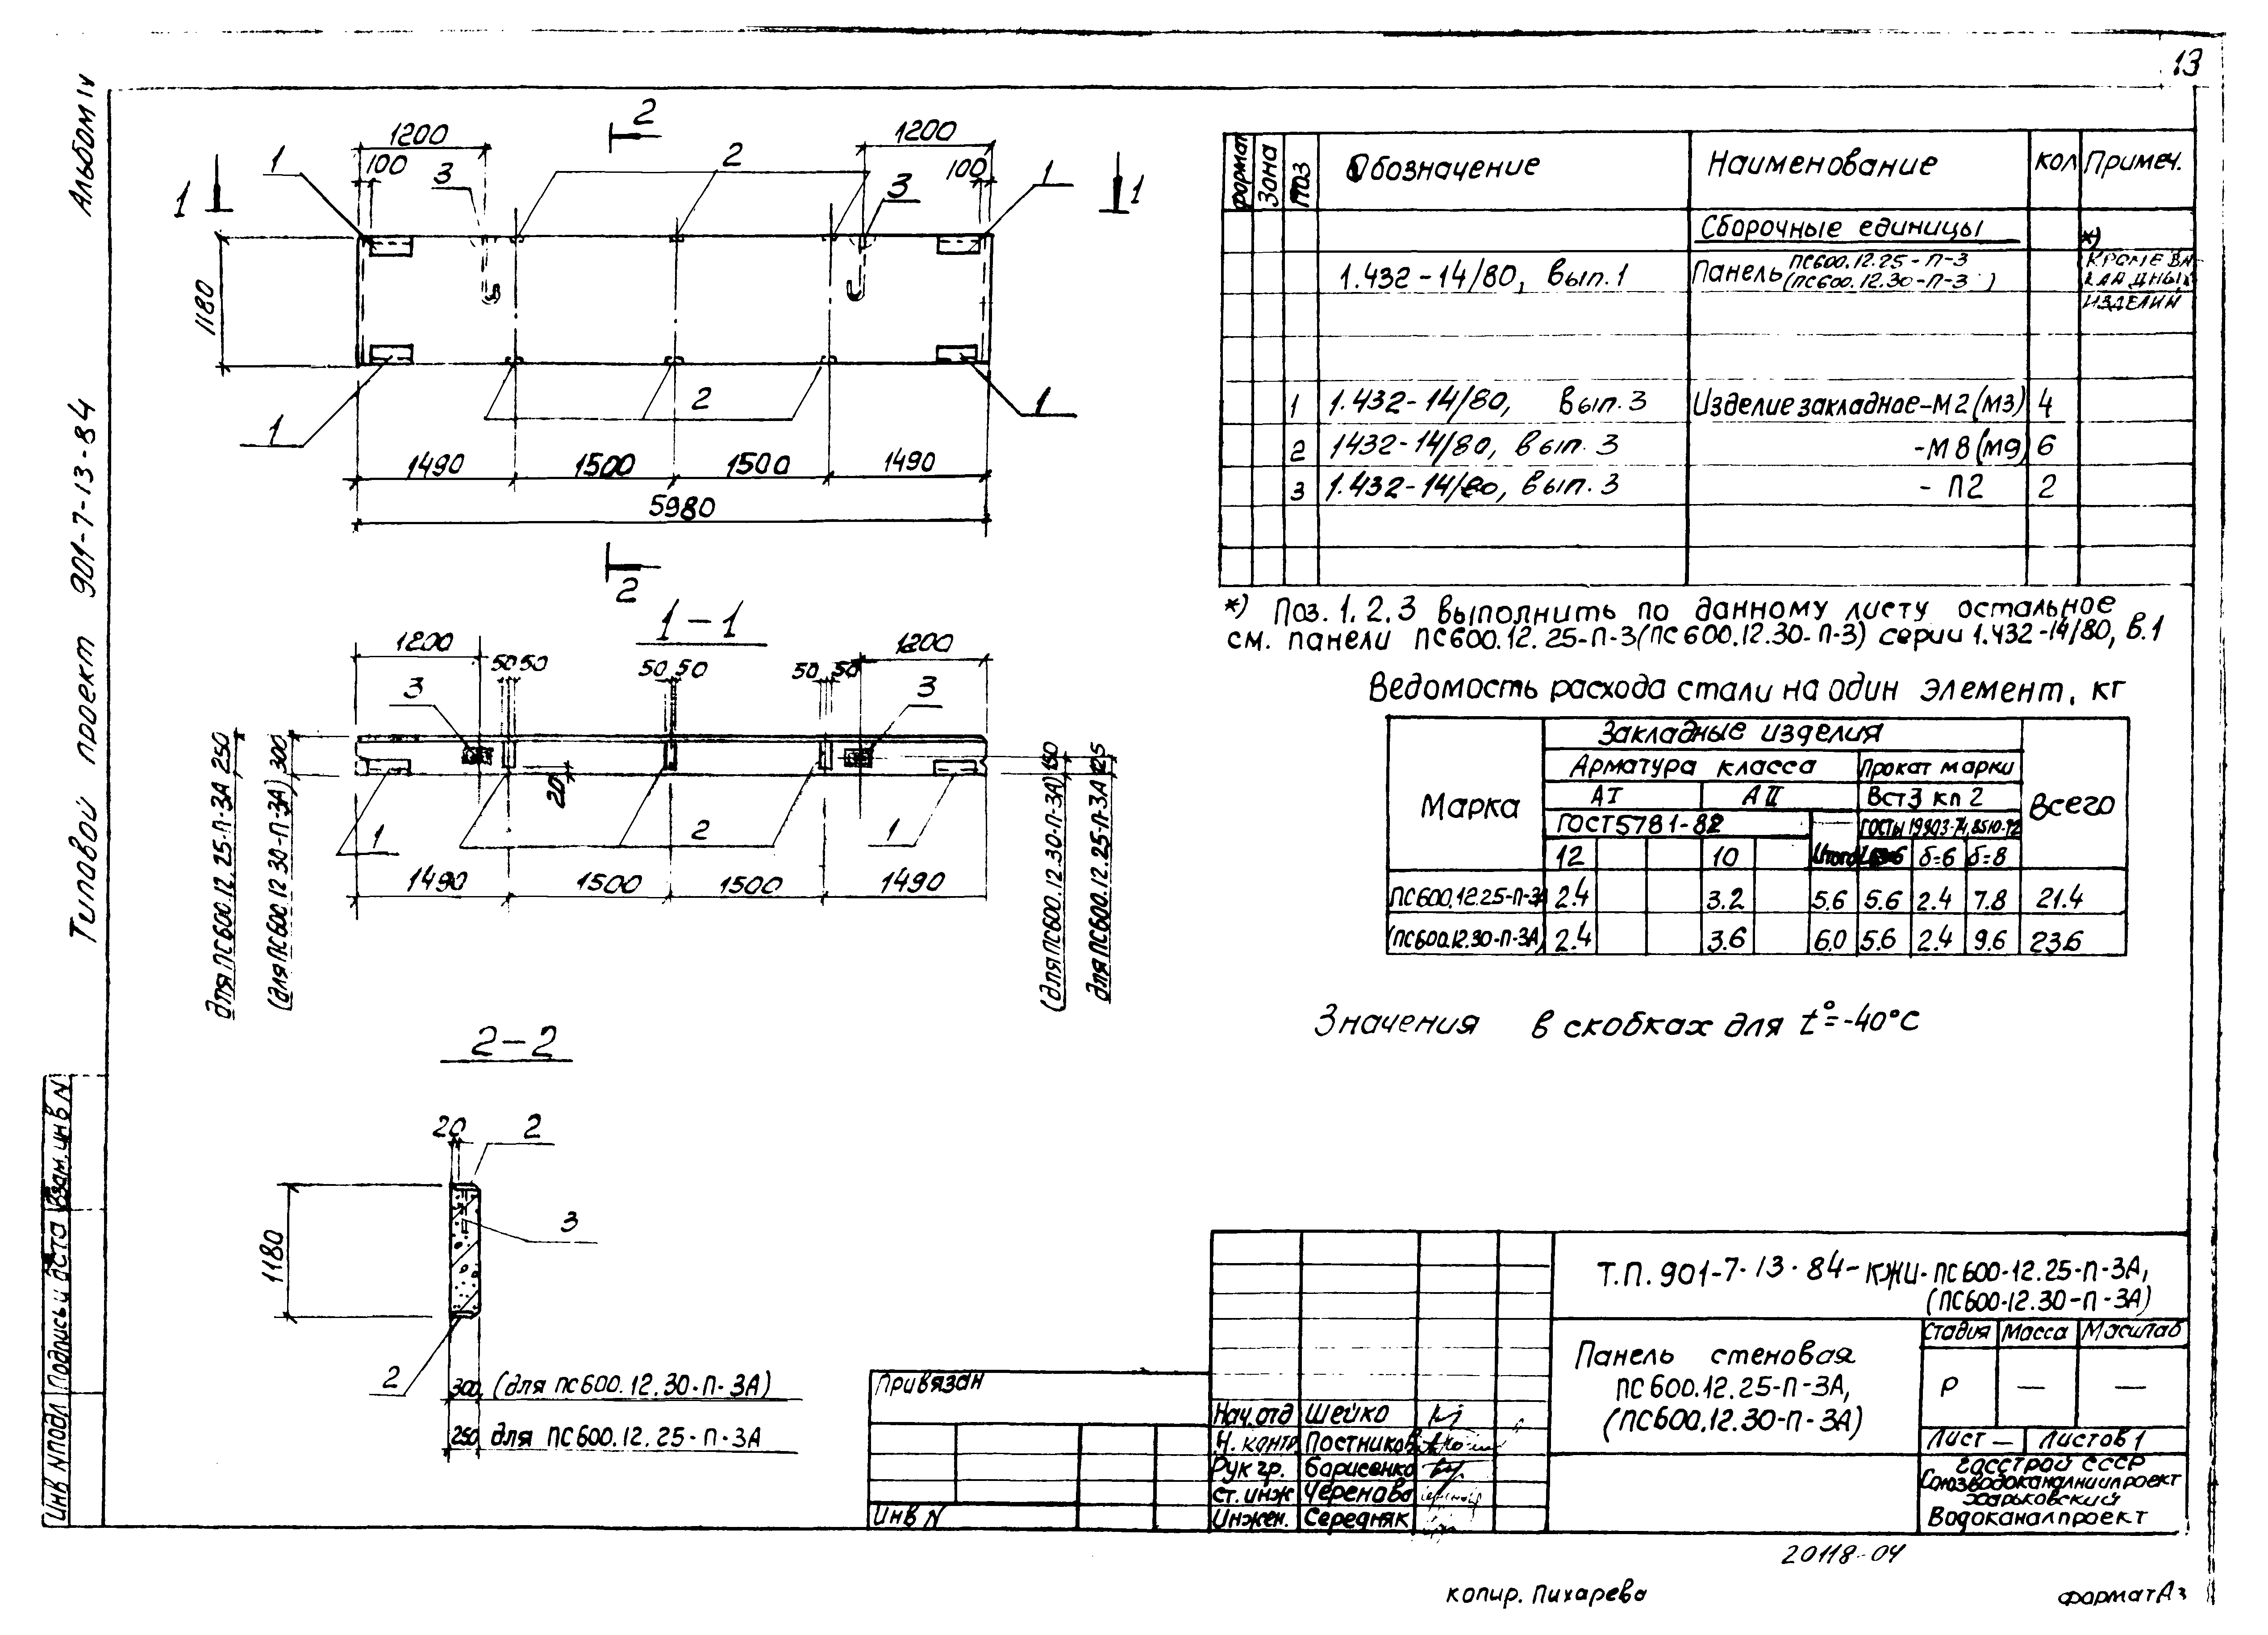 13
Альбом IV
Типовой проект 901-7-13-84
Инв № подл
Подпись и дата
Взам. инв N
2
1200
1200
1
100
3
2
3
100
1
1
1
1180
1
2
1
1490
1500
1500
1490
5980
2
1-1
1200
50 50
50 50
50 50
1200
3
3
для ПС600.12.25-П-3А 250
(для ПС600.12.30-П-3А) 300
20
1
2
1
(для ПС600.12.30-П-3А) 150
для ПС600.12.25-П-3А 125
1490
1500
1500
1490
2-2
20
2
3
1180
2
300 (для ПС600.12.30-П-3А)
250 для ПС600.12.25-П-3А
формат Зона Поз Обозначение Наименование Кол Примеч.
Сборочные единицы *)
1.432-14/80, вып.1 Панель ПС600.12.25-П-3 (ПС600.12.30-П-3) кроме закладных изделий
1 1.432-14/80, вып.3 Изделие закладное-М2(М3) 4
2 1432-14/80, вып.3 -М8(М9) 6
3 1.432-14/80, вып.3 - П2 2
*) Поз. 1.2.3 выполнить по данному листу остальное
см. панели ПС600.12.25-П-3(ПС600.12.30-П-3) серии 1.432-14/80, в.1
Ведомость расхода стали на один элемент, кг
Марка
Закладные изделия
Всего
Арматура класса Прокат марки
АI АII Вст3 кп2
ГОСТ5781-82 ГОСТы 19903-74, 8510-72
12 10 Итого δ=6 δ=8
ПС600.12.25-П-3А 2.4 3.2 5.6 5.6 2.4 7.8 21.4
(ПС600.12.30-П-3А) 2.4 3.6 6.0 5.6 2.4 9.6 23.6
Значения в скобках для t°=-40°С
Т.П. 901-7-13-84-КЖИ-ПС600-12.25-П-3А,
(ПС600-12.30-П-3А)
Панель стеновая
ПС600.12.25-П-3А,
(ПС600.12.30-П-3А)
Стадия Масса Масштаб
Р — —
Лист — Листов 1
Госстрой СССР
Союзводоканалниипроект
Харьковский
Водоканалпроект
Привязан
Инв N
Нач.отд Шейко
Н. контр Постников
Рук гр. Борисенко
Ст. инж Чернова
Инжен. Середняк
20118-04
копир. Пихарева
Формат А3